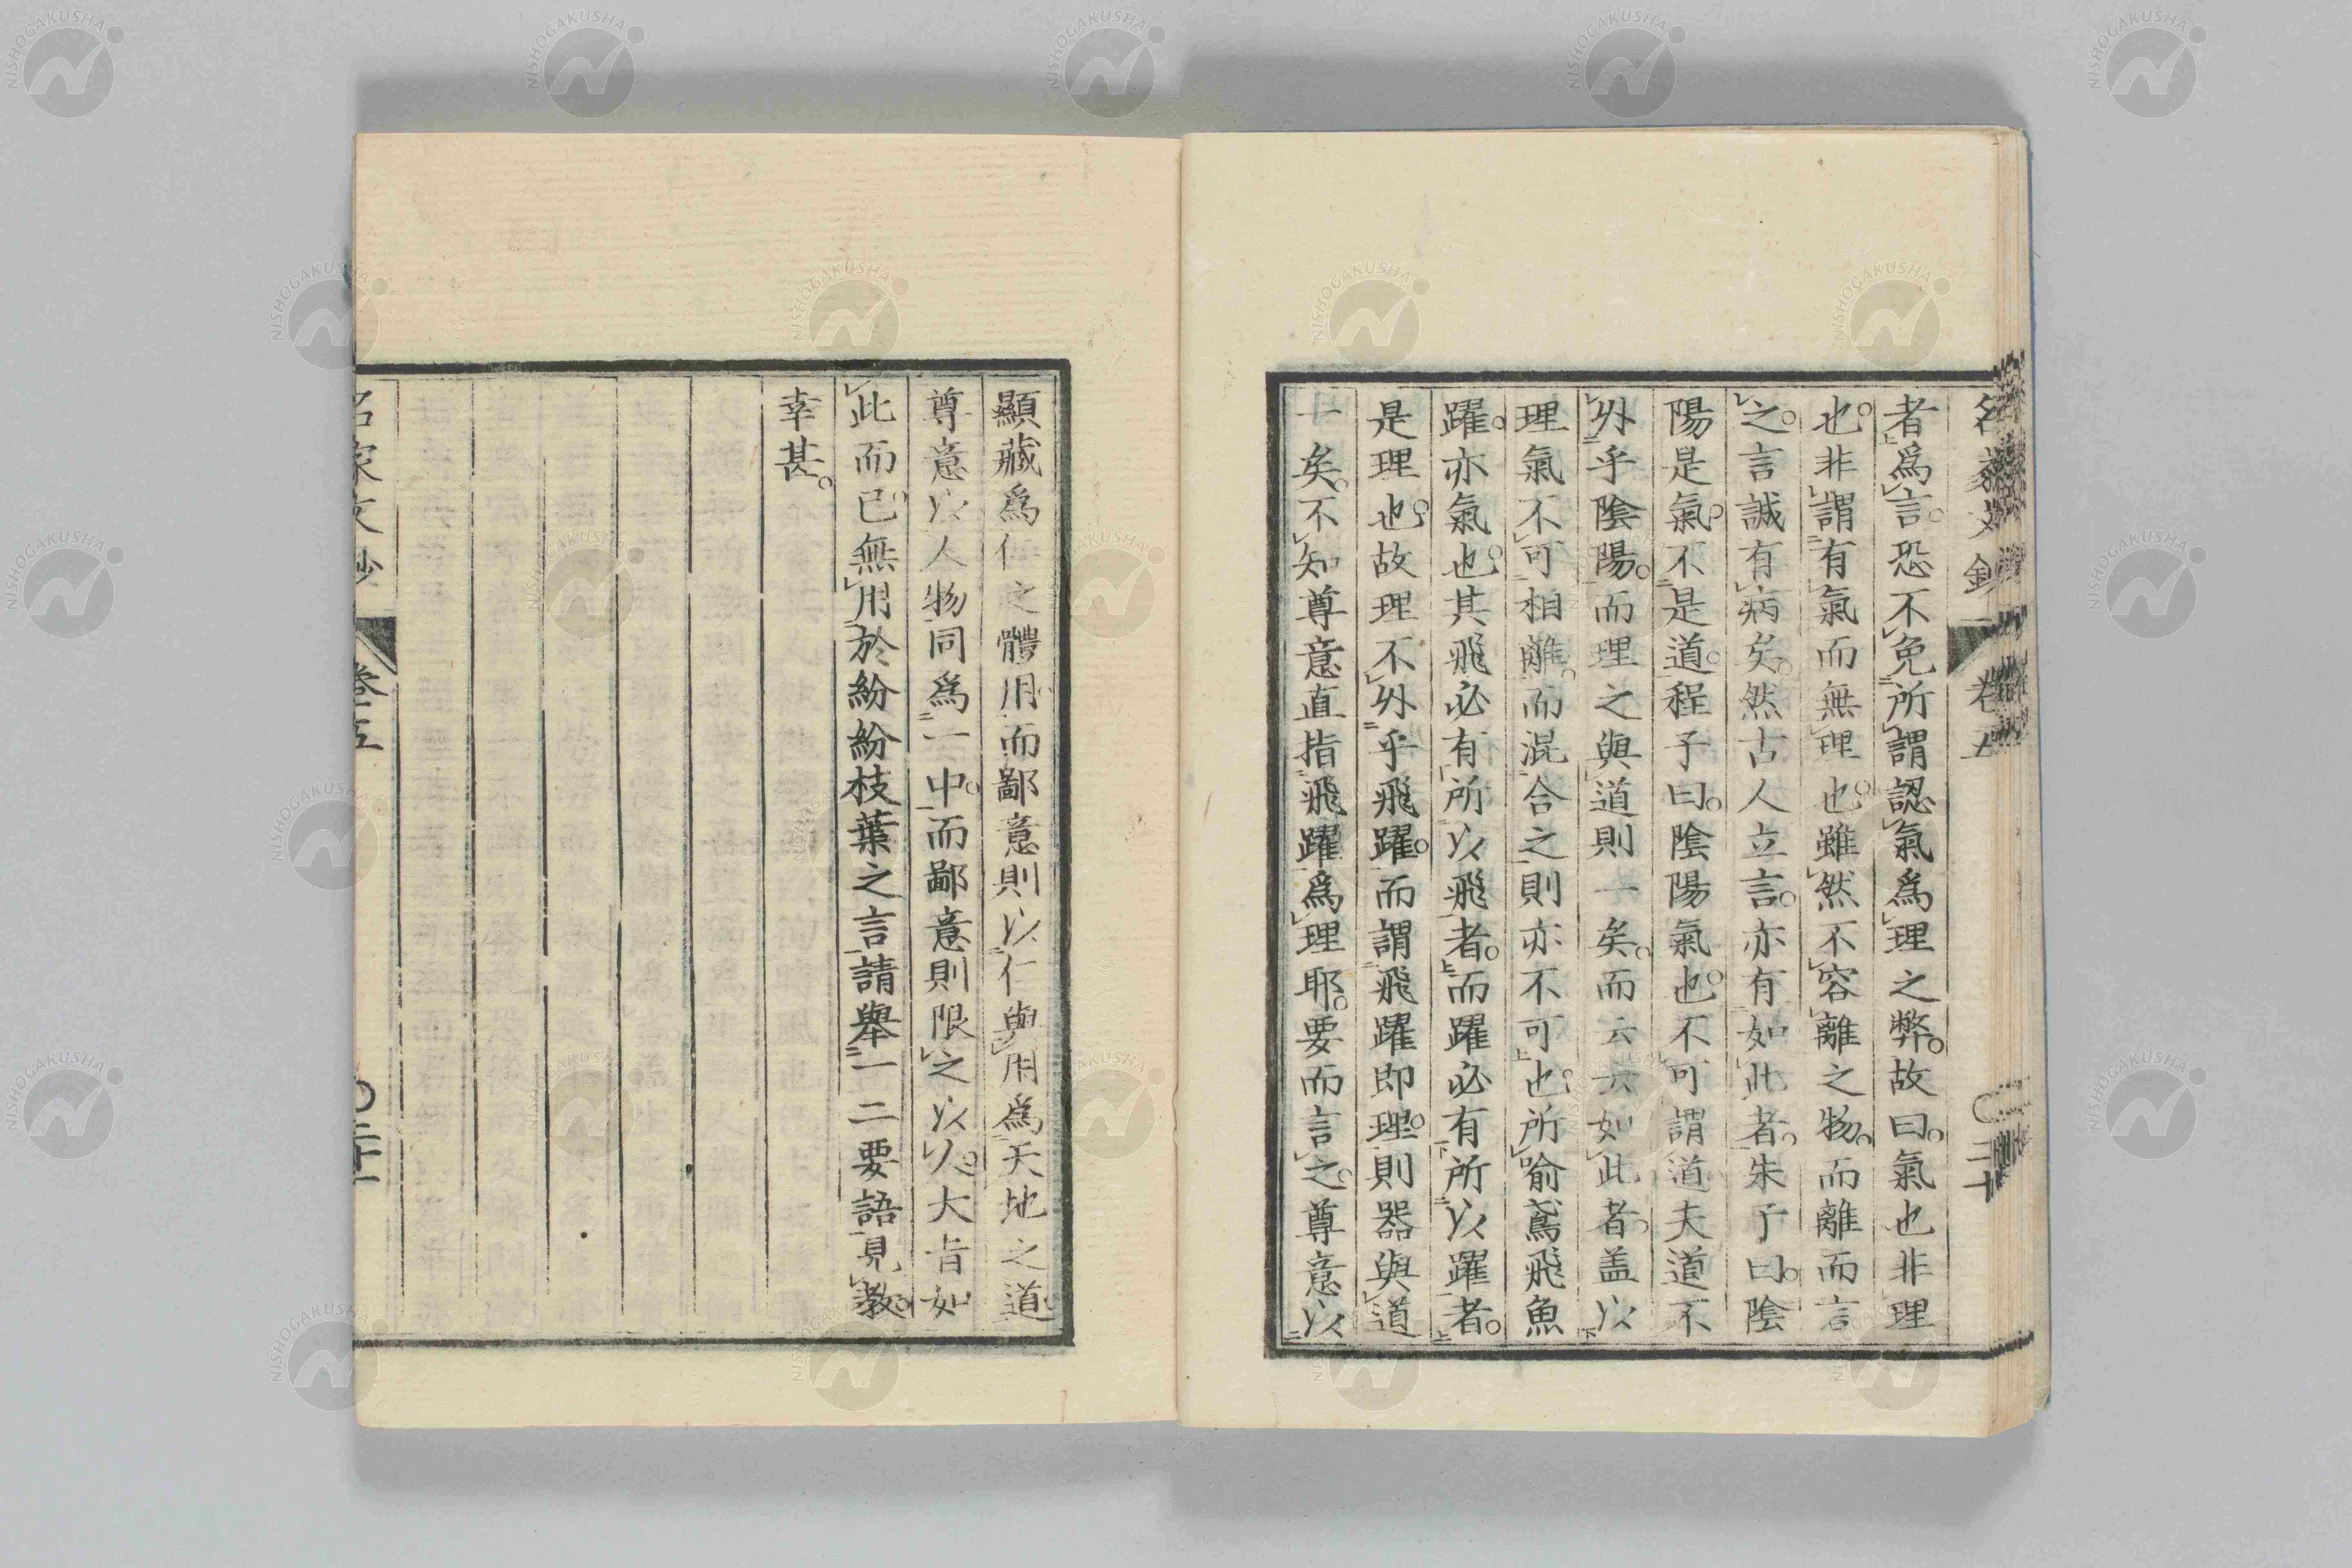 名家文鈔 卷五 〇二十
者爲言。恐不免所謂認氣爲理之弊。故曰。氣也非理
也。非謂有氣而無理也。雖然不容離之物。而離而言
之。言誠有病矣。然古人立言。亦有如此者。朱子曰。陰
陽是氣。不是道。程子曰。陰陽氣也。不可謂道夫道不
外乎陰陽。而理之與道則一矣。而云云如此者。盖以
理氣不可相離。而混合之則亦不可也。所喻鳶飛魚
躍。亦氣也。其飛必有所以飛者。而躍必有所以躍者。
是理也。故理不外乎飛躍。而謂飛躍即理。則器與道
一矣。不知尊意直指飛躍爲理耶。要而言之。尊意以
顯藏爲仁之體用而鄙意則以仁與用爲天地之道。
尊意以人物同爲一中。而鄙意則限之以人。大旨如
此而已。無用於紛紛枝葉之言請舉一二要語見教。
幸甚。
名家文鈔 卷五 〇二十一
NISHOGAKUSHA